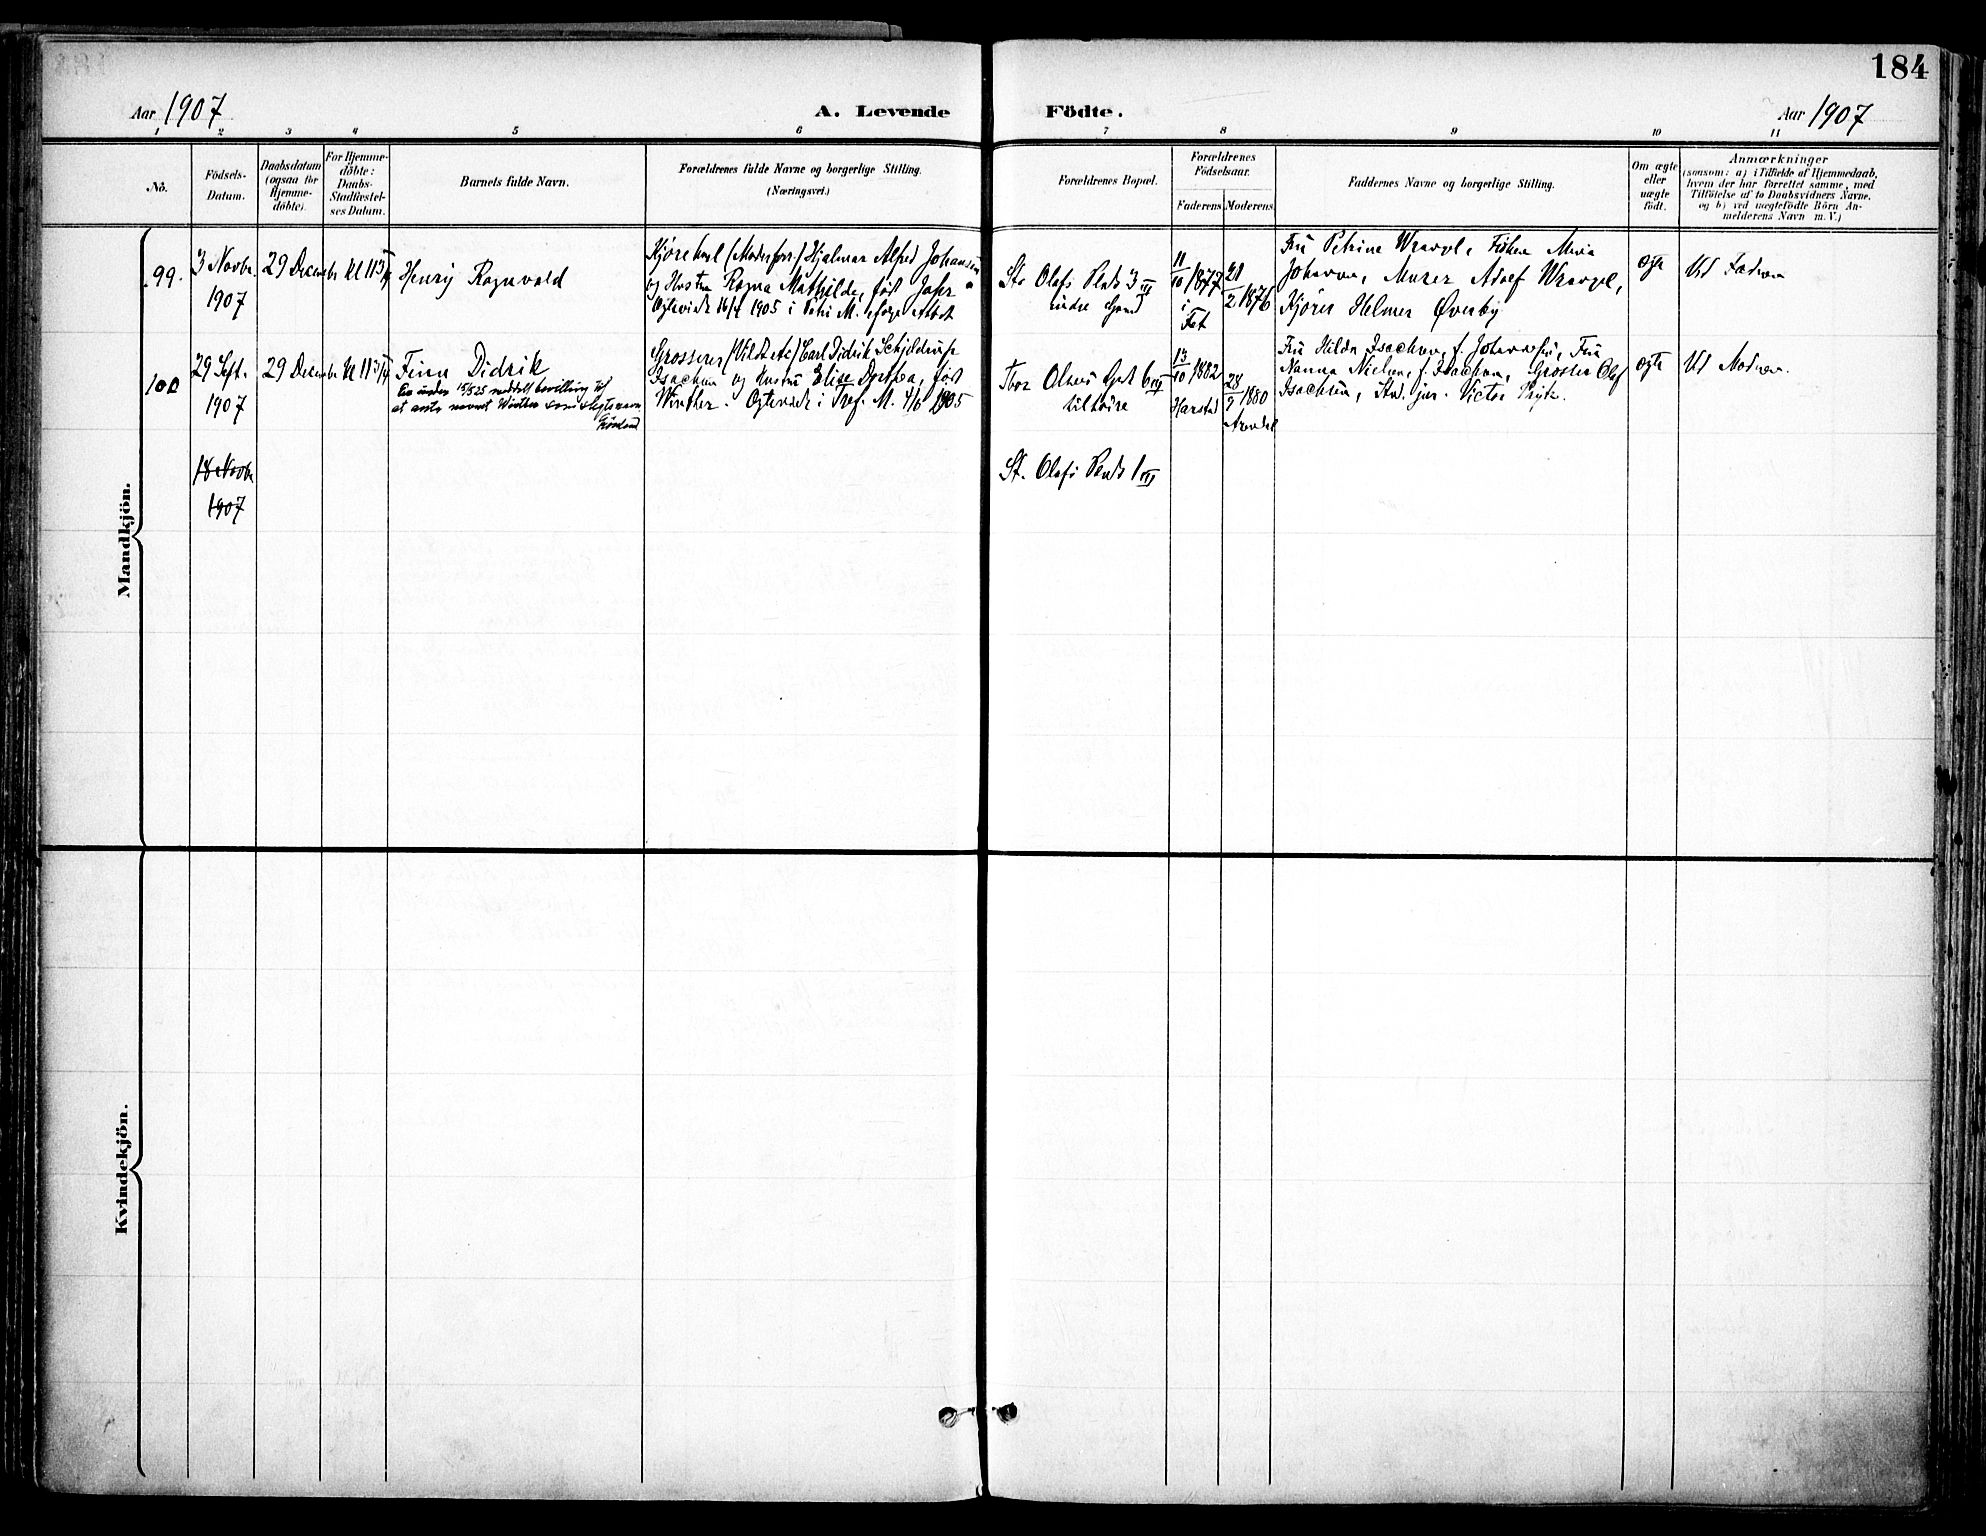 184
Aar 1907
A. Levende
Födte.
Aar 1907
1 2 3 4 5 6 7 8 9 10 11
No.
Födsels-
Datum.
Daabsdatum
(ogsaa for
Hjemme-
döbte).
For Hjemme-
döbte:
Daabs-
Stadfæstel-
ses Datum.
Barnets fulde Navn.
Forældrenes fulde Navne og borgerlige Stilling.
(Næringsvei.)
Forældrenes Bopæl.
Forældrenes
Födselsaar.
Faderens
Moderens
Faddernes Navne og borgerlige Stilling.
Om ægte
eller
uægte
født.
Anmærkninger
(saasom: a) i Tilfælde af Hjemmedaab,
hvem der har forrettet samme, med
Tilföielse af to Daabsvidners Navne,
og b) ved uægtefödte Börn An-
melderens Navn m. V.)
Mandkjön.
99.
3 Novbr.
1907
29 Decembr
Henry Ragnvald
Hjalmar Alfred Johansen
og Hustru Ragna Mathilde, født Jahr
Ægteviede 16/4 1905 i Petri M.
St. Olafs Plads 3 III
indre Gaard
11/10 1877
i
Fet
21/2 1876
Fru Petrine Wrangel,
Johansen, Murer Adolf Wrangel,
Kjører Helmer Øverby
ægte
Ved Faderen
100
29 Sept.
1907
29 Decembr
Finn Didrik
Er under 15/5 25 meddelt bevilling til
at anta navnet Winther som slegtsnavn
Grosserer (Vildt etc) Carl Didrik Schjelderup
Isachsen og Hustru Elise Dorthea, født
Winther. Ægteviede i Tref. M. 4/6 1905
Thor Olsens Gt 6 III
tilhøire
13/10 1882
Harstad
28/9 1880
Arendal
Fru Hilda Isachsen, f. Johannesen, Fru
Nanna Nielsen, f. Isachsen, Grosser Olaf
Isachsen, Stud. jur. Victor
ægte
Ved Moderen
18 Novbr
1907
St. Olafs Plads 1 III
Kvindekjön.